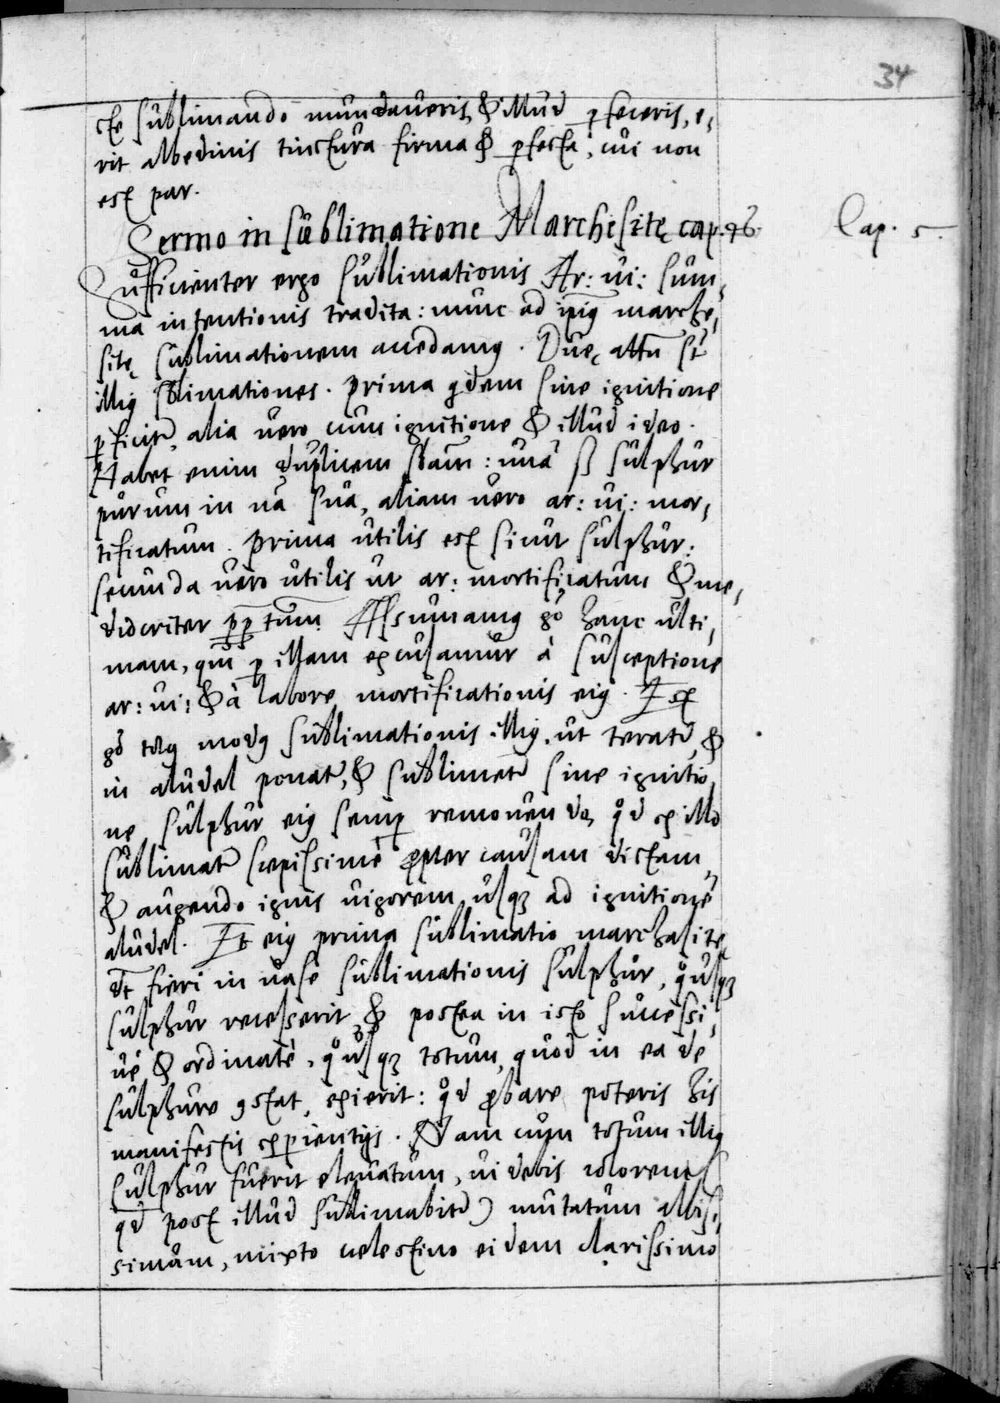 34
cte sublimando mundaveris, & illud pfeceris, e,
rit albedinis tinctura firma & pfecta, cui non
est par.
Sermo in sublimatione Marchesitę cap. 46. Cap. 5.
Sufficienter ergo sublimationis Ar: ui: sum,
ma intentionis tradita: nunc ad ipiꝰ marche,
sitę sublimationem accedamꝰ. Duę attñ st
illiꝰ sblimationes. prima qdem sine ignitione
pficitr, alia uero cum ignitione & illud ideo.
Habet enim duplicem sbam: unā ß sulphur
purum in nā sua, aliam uero ar: ui: mor,
tificatum. prima utilis est sicut sulphur:
secunda uero utilis ut ar: mortificatum & me,
diocriter pptum. Assumamꝰ go hanc ulti,
mam, qm p illam excusamur à susceptione
ar: ui: & à labore mortificationis eiꝰ. Est
go totꝰ modꝰ sublimationis illiꝰ, ut teratr, &
in aludel ponatr, & sublimetr sine ignitio,
ne sulphur eiꝰ semp remouendo, qd ex illo
sublimatr sæpissimè propter causam dictam,
& augendo ignis uigorem usqꝫ ad ignitionē
aludel. Et eiꝰ prima sublimatio marchasitę
dt fieri in uase sublimationis sulphur, qousqꝫ
sulphur recesserit, & postea in isto successi,
uè & ordinatè, qousqꝫ totum, quod in ea de
sulphure ꝯstat, exierit: qd probare poteris his
manifestis experientijs. Nam cum totum illiꝰ
sulphur fuerit eleuatum, uidebis colorem (
qd post illud sublimabitr) mutatum albis,
simum, mixto celestino eidem clarissimo